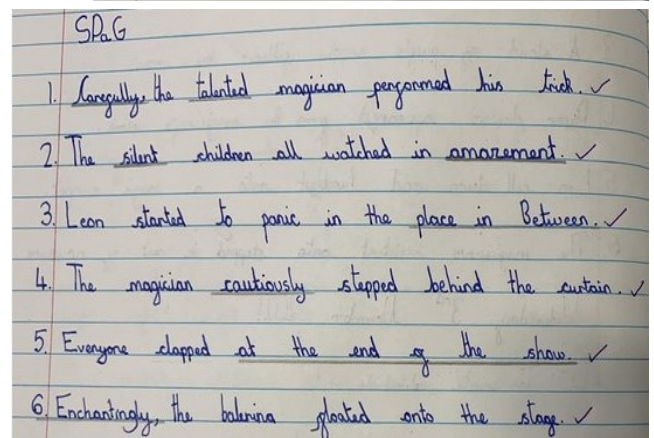 SPaG
1. Caregully, the talented magician pergormed his trick. ✓
2. The silent children all watched in amazement. ✓
3. Leon started to panic in the place in Between. ✓
4. The magician cautiously stepped behind the curtain. ✓
5. Everyone clapped at the end of the show. ✓
6. Enchantingly, the balerina floated onto the stage. ✓